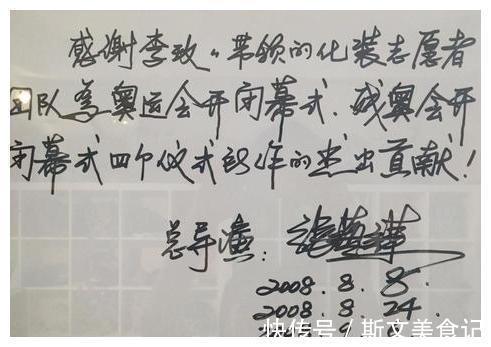 感谢李玫、带领的化装志愿者
团队为奥运会开闭幕式、残奥会开
闭幕式四个仪式所作的杰出贡献！
总导演：张艺谋
2008.8.8.
2008.8.24.
快传号/斯文美食记